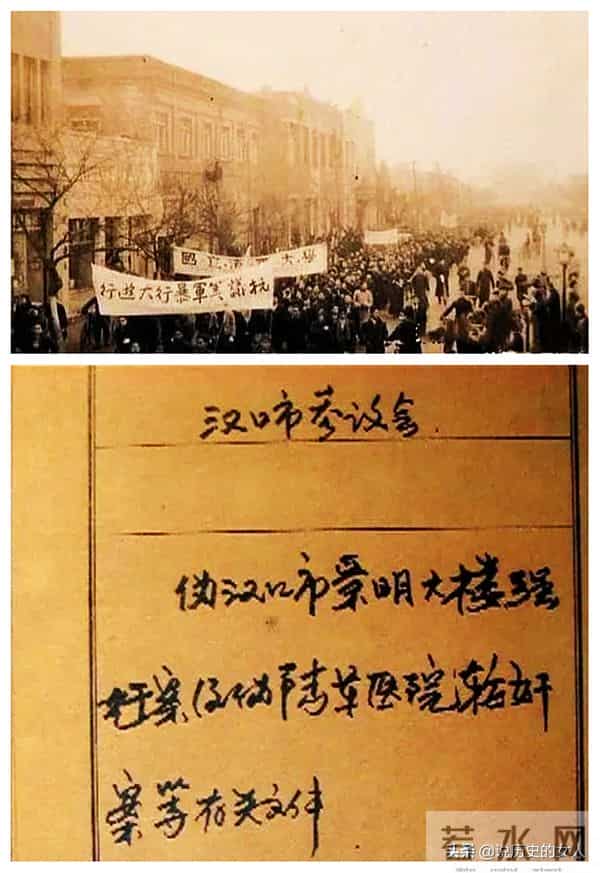 國立大學
抗議美軍暴行大遊行
汉口市参议会
伪汉口市景明大楼强
奸案及伪市医院轮奸
案等有关文件
若水网
头条 @说历史的女人